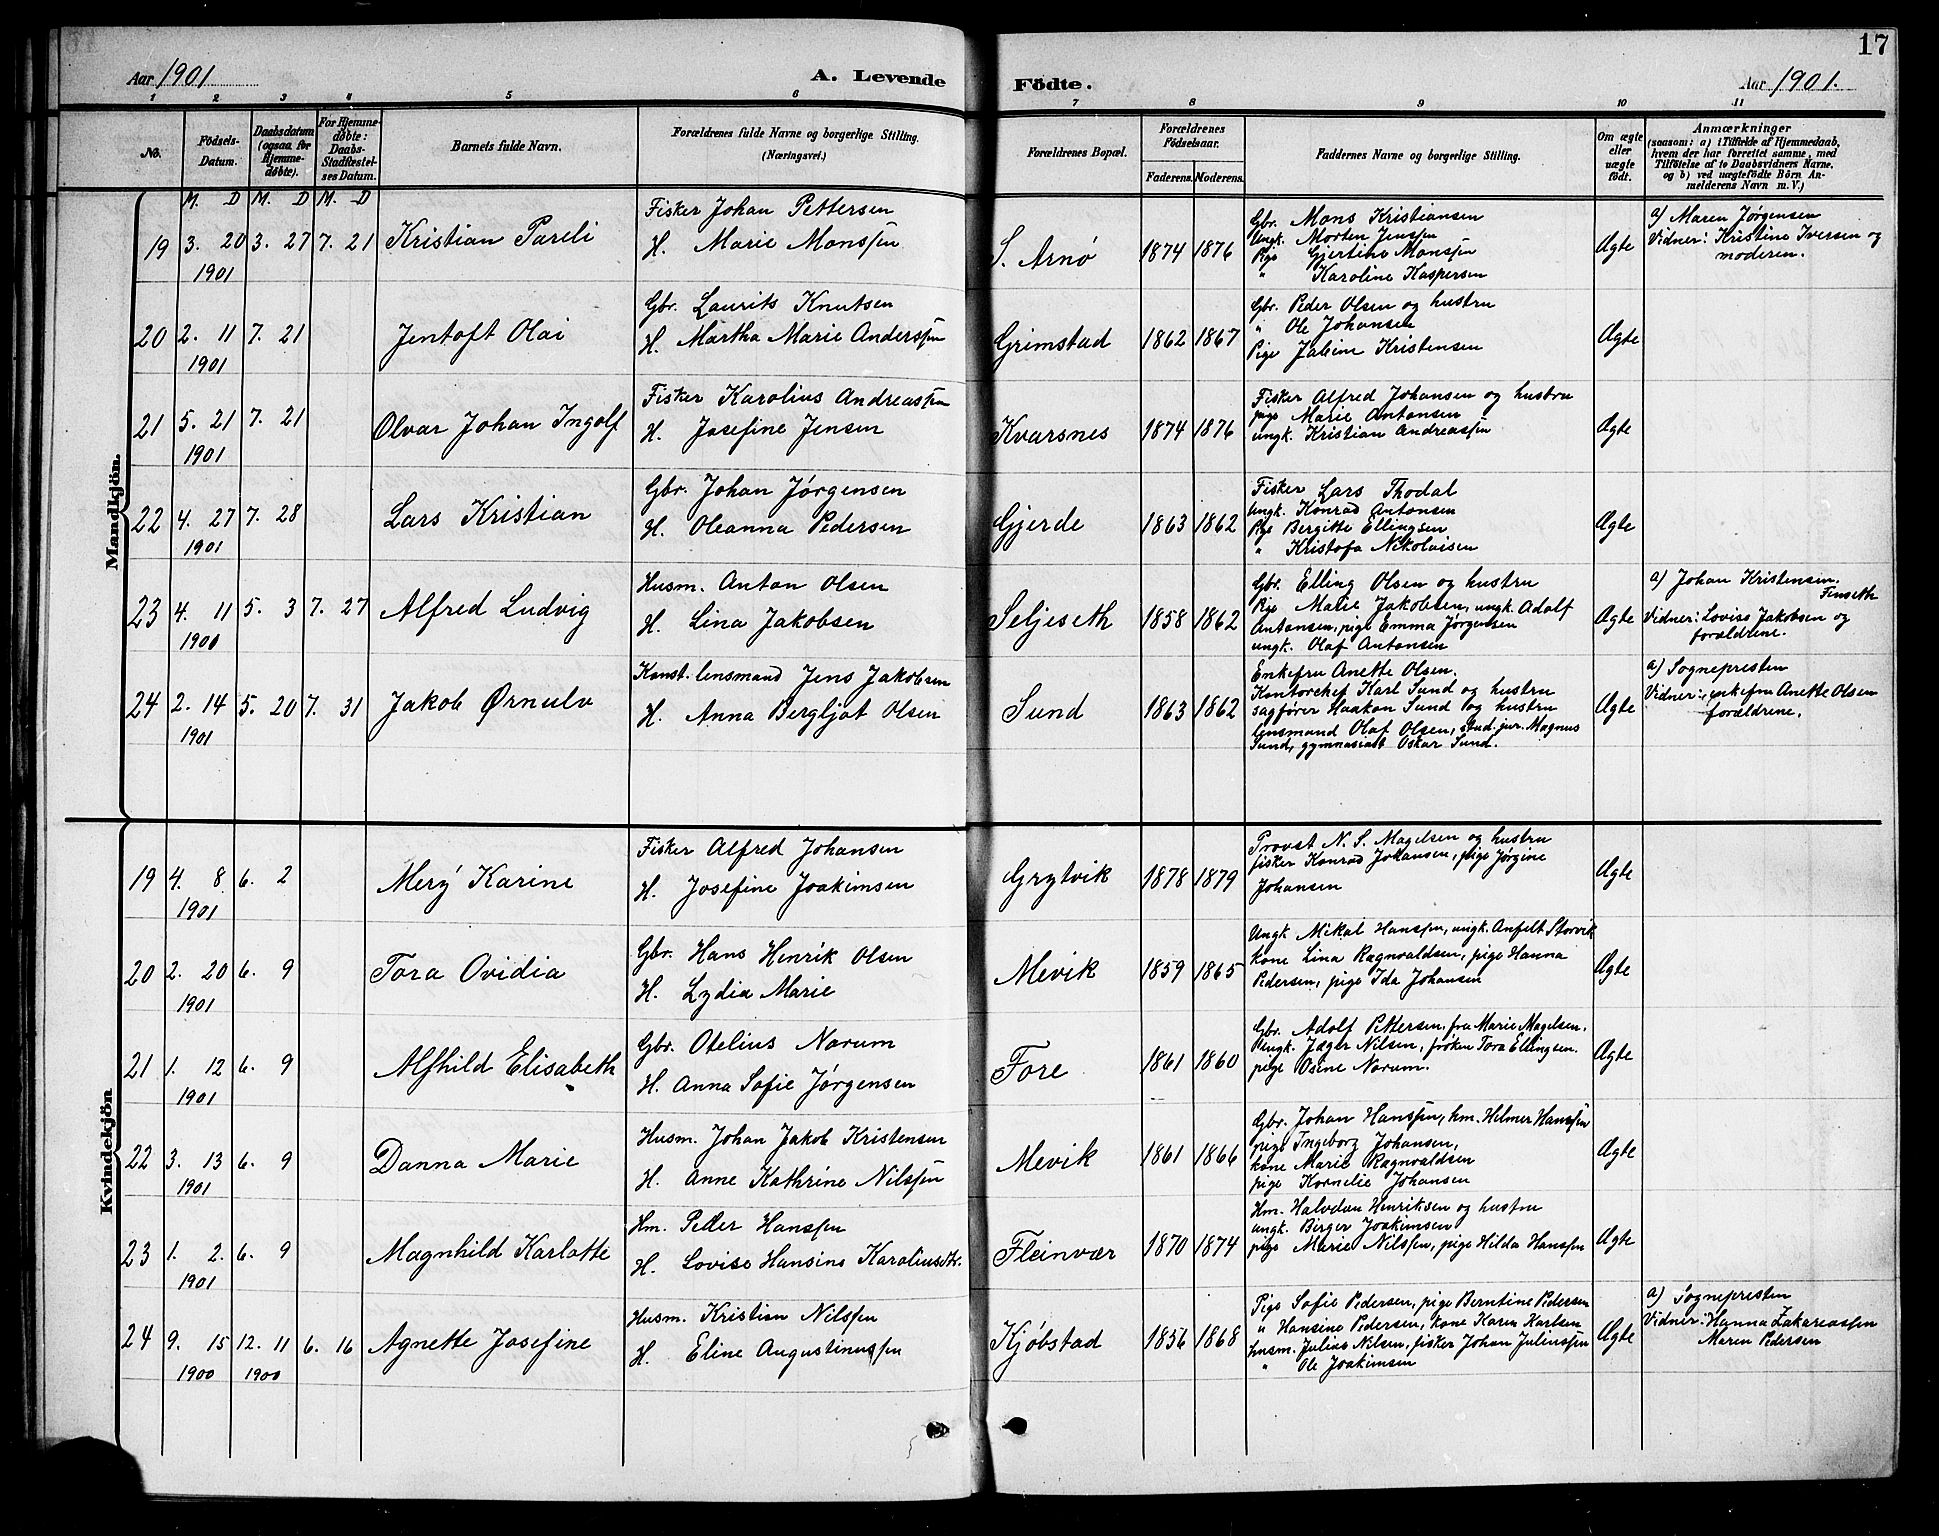 17
Aar 1901
A. Levende
Födte.
Aar 1901.
1 2 3 4 5 6 7 8 9 10 11
No.
Födsels-Datum.
Daabsdatum (ogsaa for Hjemme-døbte).
For Hjemme-døbte: Daabs-Stadfæstel-ses Datum.
Barnets fulde Navn.
Forældrenes fulde Navne og borgerlige Stilling.
(Næringsvei.)
Forældrenes Bopæl.
Forældrenes Födselsaar.
Faderens. Moderens.
Faddernes Navne og borgerlige Stilling.
Om ægte eller uægte födt.
Anmærkninger
(saasom: a) i Tilfælde af Hjemmedaab, hvem der har forrettet samme, med Tilföielse af to Daabsvidners Navne, og b) ved uægtefödte Börn An-melderens Navn m. V.)
M. D M. D M. D
Mandkjön.
19 3. 20 1901 3. 27 7. 21 Kristian Pareli
Fisker Johan Pettersen
H. Marie Monssen
S. Arnø 1874 1876
Gbr. Mons Kristiansen
Ungk. Morten Jenssen
Pige Gjertine Monssen
" Karoline Kaspersen
Ægte
a) Maren Jørgensen
Vidner: Kristine Iversen og
moderen.
20 2. 11 1901 7. 21 Jentoft Olai
Gbr. Laurits Knutsen
H. Martha Marie Anderssen
Grimstad 1862 1867
Gbr. Peder Olsen og hustru
" Ole Johansen
Pige Jakine Kristensen
Ægte
21 5. 21 1901 7. 21 Olvar Johan Ingolf
Fisker Karolius Andreassen
H. Josefine Jensen
Kvarsnes 1874 1876
Fisker Alfred Johansen og hustru
pige Marie Antonsen
ungk. Kristian Andreassen
Ægte
22 4. 27 1901 7. 28 Lars Kristian
Gbr. Johan Jørgensen
H. Oleanna Pedersen
Gjerde 1863 1862
Fisker Lars Thodal
Ungk. Konrad Antonsen
Pige Bergitte Ellingsen
" Kristofa Nikolaisen
Ægte
23 4. 11 1900 5. 3 7. 27 Alfred Ludvig
Husm. Anton Olsen
H. Lina Jakobsen
Seljeseth 1858 1862
Gbr. Elling Olsen og hustru
Pige Marie Jakobsen, ungk. Adolf
Antonsen, pige Emma Jørgensen
ungk. Olaf Antonsen
Ægte
a) Johan Kristensen.
Finseth
Vidner: Lovise Jakobsen og
forældrene.
24 2. 14 1901 5. 20 7. 31 Jakob Ørnulv
Konst. lensmand Jens Jakobsen
H. Anna Bergljot Olsen
Sund 1863 1862
Enkefru Anette Olsen.
Kontorchef Karl Sund og hustru
sagfører Haakon Sund og hustru
lensmand Olaf Olsen, stud. jur. Magnus
Sund, gymnasiast Oskar Sund.
Ægte
a) Sognepresten
Vidner: enkefru Anette Olsen
forældrene.
Kvindekjön
19 4. 8 1901 6. 2 Merý Karine
Fisker Alfred Johansen
H. Josefine Joakimsen
Grytvik 1878 1879
Provst N. S. Magelsen og hustru
fisker Konrad Johansen, pige Jørgine
Johansen
Ægte
20 2. 20 1901 6. 9 Tora Ovidia
Gbr. Hans Henrik Olsen
H. Lydia Marie
Mevik 1859 1865
Ungk Mikal Hanssen, ungk. Anfelt Storvik
kone Lina Ragnvaldsen, pige Hanna
Pedersen, pige Ida Johansen
Ægte
21 1. 12 1901 6. 9 Alfhild Elisabeth
Gbr. Otelius Norum
H. Anna Sofie Jørgensen
Fore 1861 1860
Gbr. Adolf Pettersen, fru Marie Magelsen.
ungk. Jæger Nilsen, frøken Tora Ellingsen.
pige Osine Norum.
Ægte
22 3. 13 1901 6. 9 Danna Marie
Husm. Johan Jakob Kristensen
H. Anne Kathrine Nilssen
Mevik 1861 1866
Gbr. Johan Hanssen, hm. Helmer Hanssen
pige Ingeborg Johansen,
kone Marie Ragnvaldsen
pige Kornelie Johansen
Ægte
23 1. 2. 1901 6. 9 Magnhild Karlotte
Hm. Peder Hanssen
H. Lovise Hansine Karoliusdtr.
Fleinvær 1870 1874
Hm. Halvdan Henriksen og hustru
ungk. Birger Joakimsen
pige Marie Nilssen, pige Hilda Hanssen
Ægte
24 9. 15 1900 12. 11 1900 6. 16 Agnette Josefine
Husm. Kristian Nilssen
H. Eline Augustinussen
Kjøbstad 1856 1868
Pige Sofie Pedersen, pige Berntine Pedersen
" Hansine Pedersen, kone Karen Karlsen
husm. Julius Nilsen, fisker Johan Juliussen
" Ole Joakimsen
Ægte
a) Sognepresten
Vidner: Hanna Zakariassen
Maren Pedersen